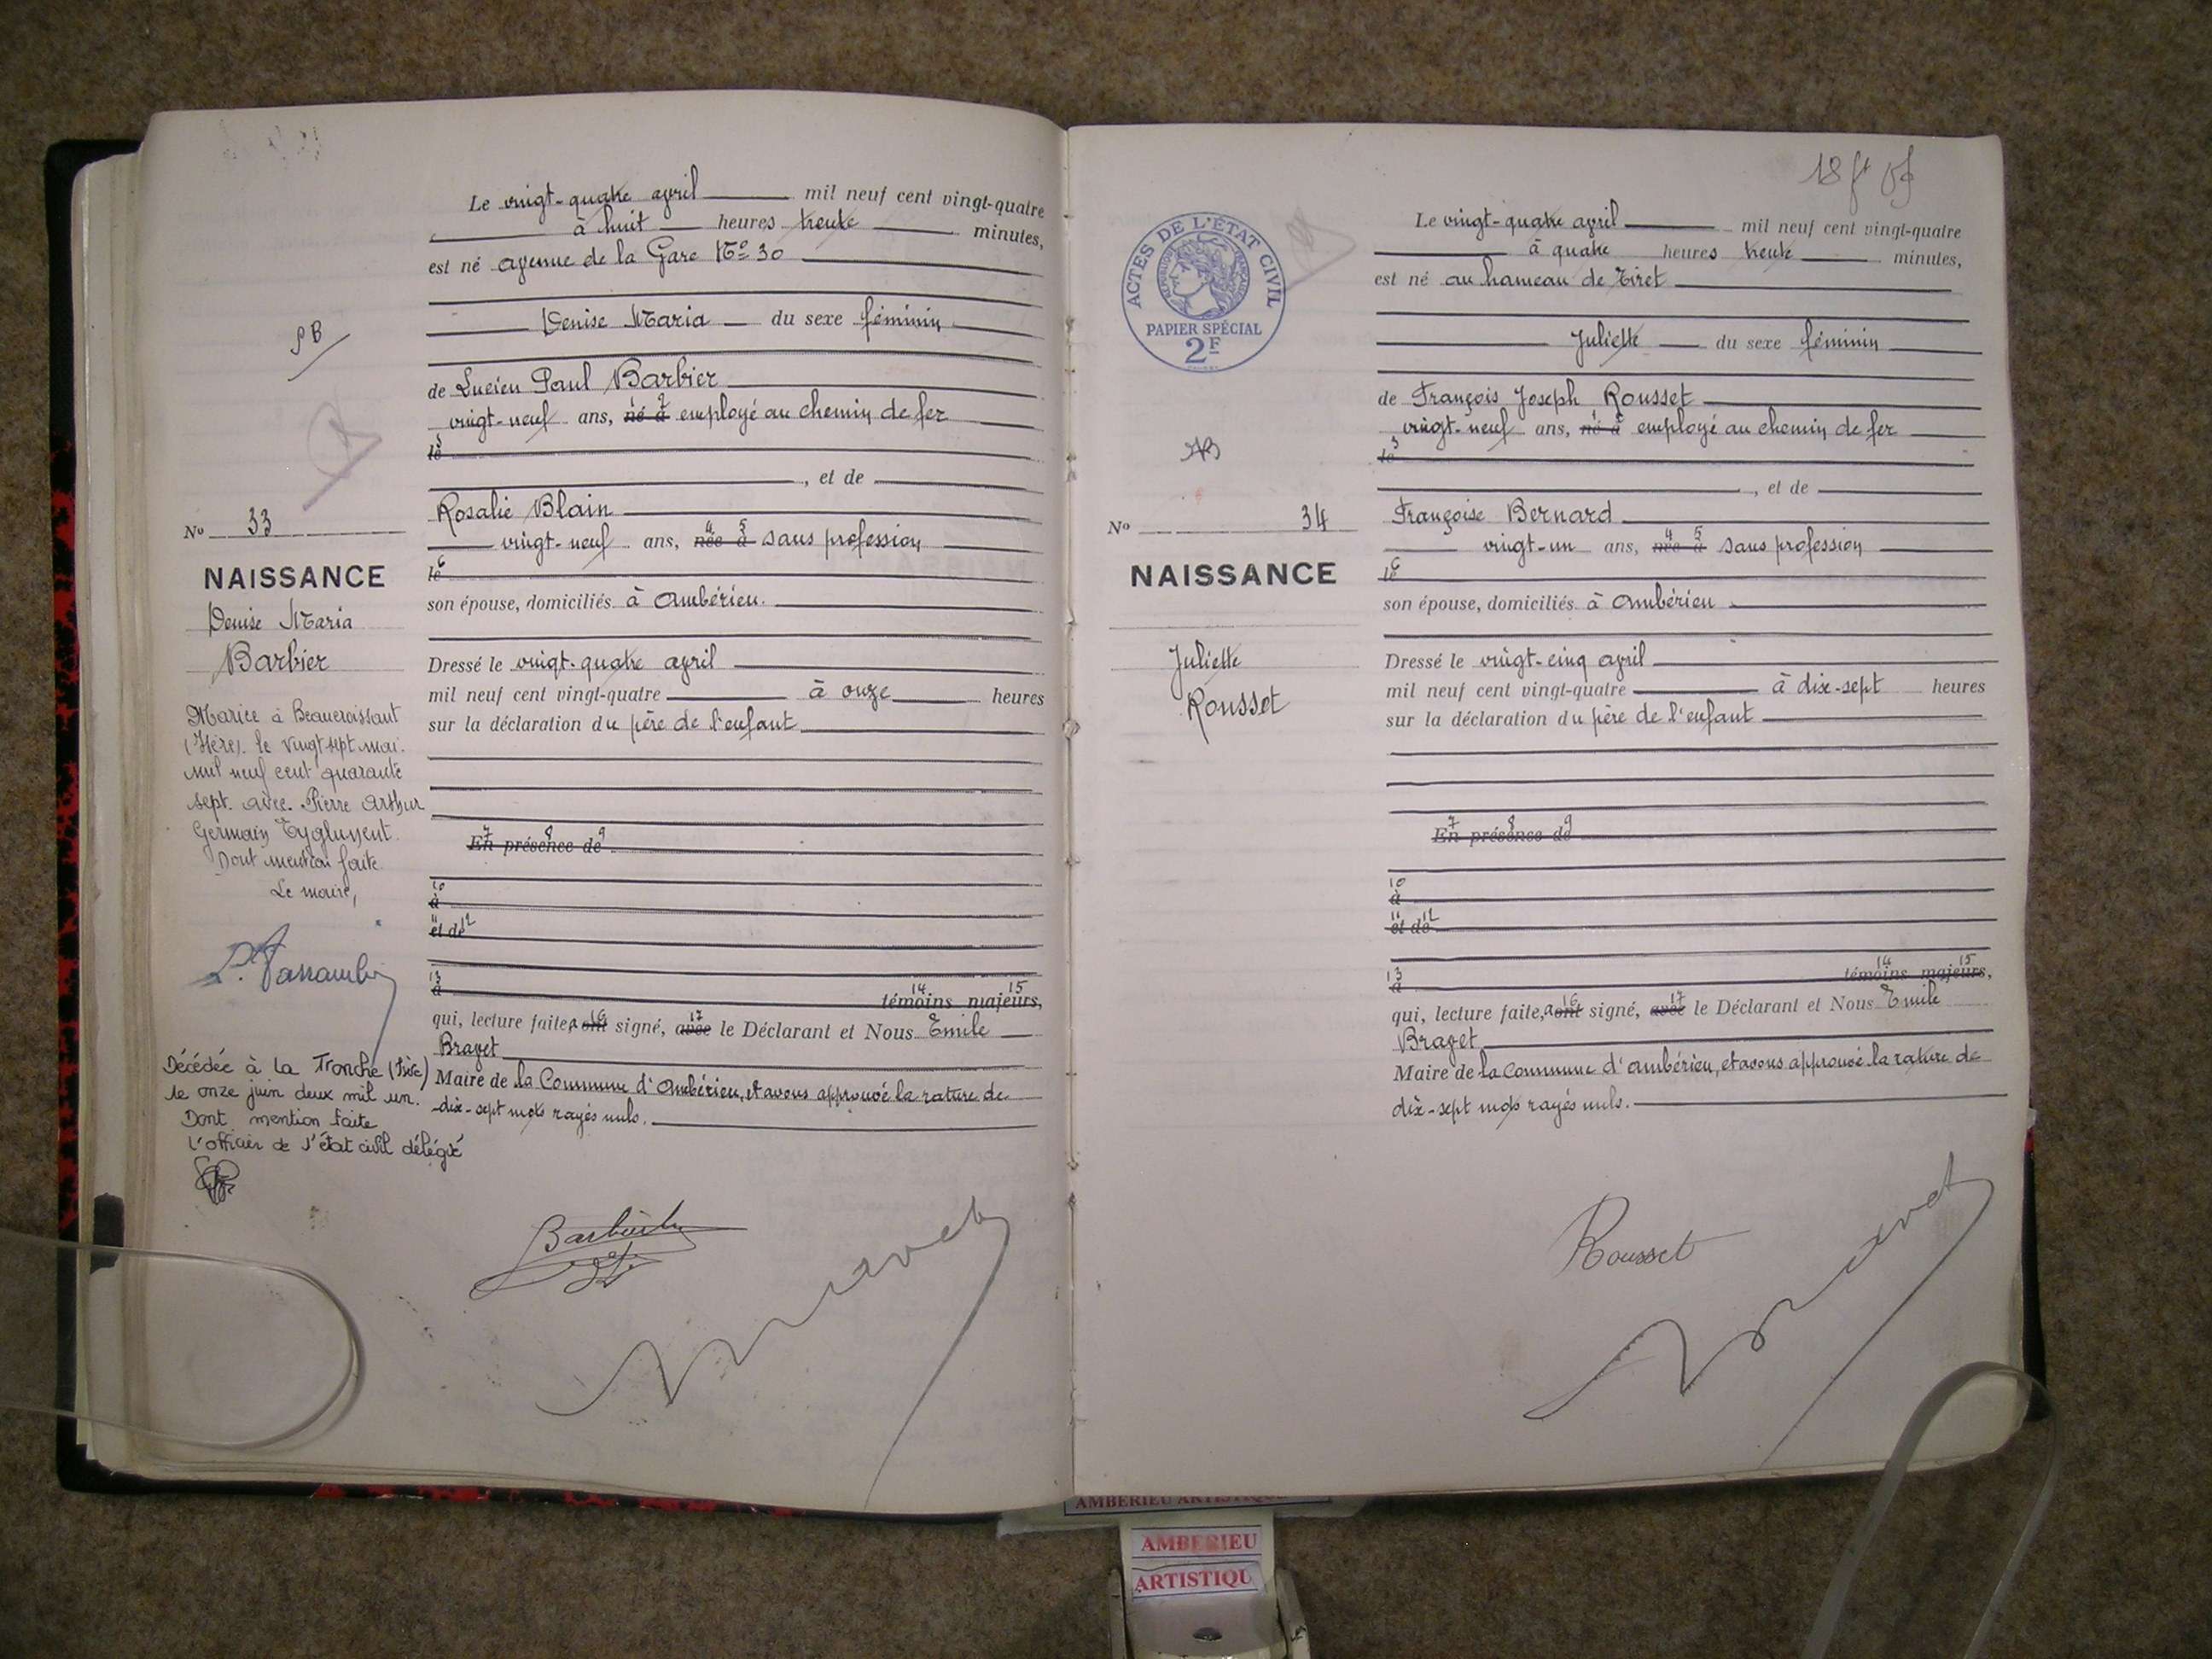 Le vingt-quatre avril mil neuf cent vingt-quatre
à huit heures trente minutes,
est né avenue de la Gare No 30
Denise Maria du sexe féminin
de Lucien Paul Barbier
vingt-neuf ans, né à employé au chemin de fer
le
, et de
Rosalie Blain
vingt-neuf ans, née à sans profession
le
son épouse, domiciliés à Ambérieu.
Dressé le vingt-quatre avril
mil neuf cent vingt-quatre à onze heures
sur la déclaration du père de l'enfant
En présence de
à
et de
à témoins majeurs,
qui, lecture faite, a ont signé, avec le Déclarant et Nous Emile
Bravet
Maire de la Commune d'Ambérieu, et avons approuvé la rature de
dix-sept mots rayés nuls.
Barbier
PB
No 33
NAISSANCE
Denise Maria
Barbier
Mariée à Beaucroissant
(Isère). le vingt sept mai.
mil neuf cent quarante
sept. avec. Pierre Arthur
Germain
Dont mention faite.
Le maire,
Décédée à La Tronche (Isère)
le onze juin deux mil un.
Dont mention faite
L'officier de l'état civil délégué
ACTES DE L'ÉTAT CIVIL
RÉPUBLIQUE FRANÇAISE
PAPIER SPÉCIAL
2F
Le vingt-quatre avril mil neuf cent vingt-quatre
à quatre heures trente minutes,
est né au hameau de Tiret
Juliette du sexe féminin
de François Joseph Rousset
vingt-neuf ans, né à employé au chemin de fer
le
, et de
Françoise Bernard
vingt-un ans, née à sans profession
le
son épouse, domiciliés à Ambérieu
Dressé le vingt-cinq avril
mil neuf cent vingt-quatre à dix-sept heures
sur la déclaration du père de l'enfant
En présence de
à
et de
à témoins majeurs,
qui, lecture faite, a ont signé, avec le Déclarant et Nous Emile
Bravet
Maire de la Commune d'Ambérieu, et avons approuvé la rature de
dix-sept mots rayés nuls.
Rousset
No 34
NAISSANCE
Juliette
Rousset
AMBERIEU
AMBERIEU
ARTISTIQU